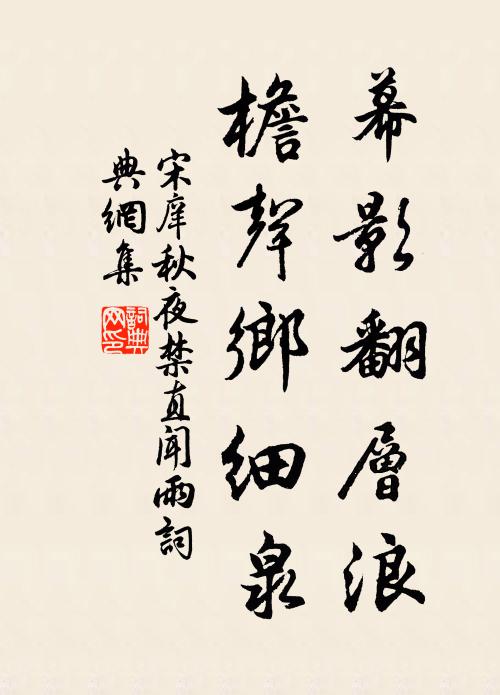 幕影翻層浪
檐聲鄉細泉
宋庠秋夜禁直聞雨詞
典網集
詞典
网印